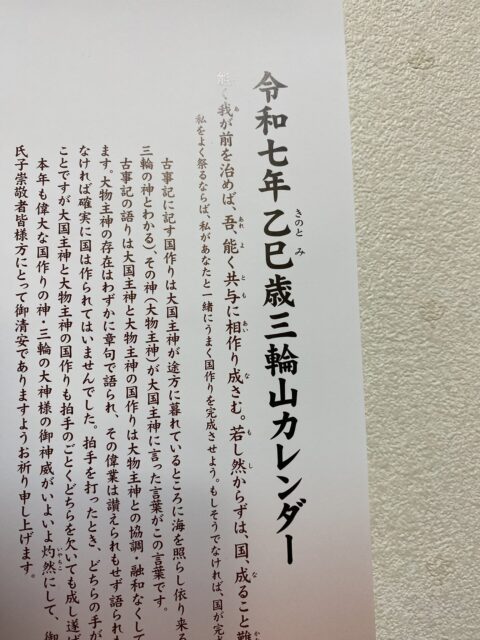 令和七年乙巳歳三輪山カレンダー
きのと み
能く我が前を治めば、吾、能く共与に相作り成さむ。若し然からずは、国、成ること難
あ あれ よ とも あい な も し な かた
私をよく祭るならば、私があなたと一緒にうまく国作りを完成させよう。もしそうでなければ、国が完
古事記に記す国作りは大国主神が途方に暮れているところに海を照らし依り来る
三輪の神とわかる)、その神(大物主神)が大国主神に言った言葉がこの言葉です。
古事記の語りは大国主神と大物主神の国作りは大物主神との協調・融和なくして
ます。大物主神の存在はわずかに章句で語られ、その偉業は讃えられもせず語られも
なければ確実に国は作られてはいませんでした。拍手を打ったとき、どちらの手が
ことですが大国主神と大物主神の国作りも拍手のごとくどちらを欠いても成し遂げ
本年も偉大な国作りの神・三輪の大神様の御神威がいよいよ灼然にして、御
いやちこ
氏子崇敬者皆様方にとって御清安でありますようお祈り申し上げます。